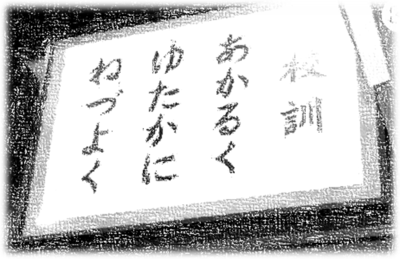 校訓
あかるく
ゆたかに
ねづよく